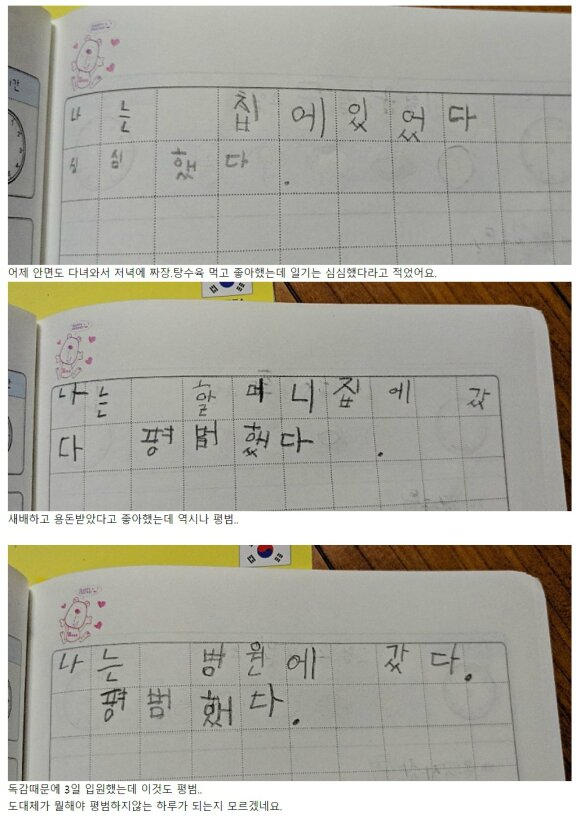 나는 칩에있었다
심심했다.
어제 안면도 다녀와서 저녁에 짜장.탕수육 먹고 좋아했는데 일기는 심심했다라고 적었어요.
나는 할머니집에 갔
다 평범했다.
새배하고 용돈받았다고 좋아했는데 역시나 평범..
나는 병원에 갔다.
평범했다.
독감때문에 3일 입원했는데 이것도 평범..
도대체가 뭘해야 평범하지않는 하루가 되는지 모르겠네요.